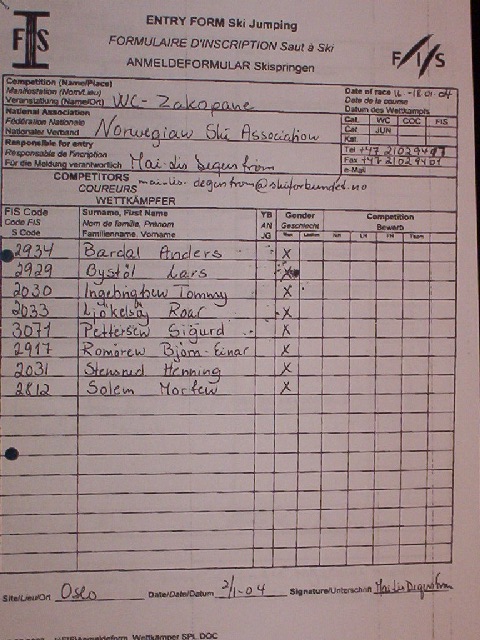 FIS
ENTRY FORM Ski Jumping
FORMULAIRE D'INSCRIPTION Saut à Ski
ANMELDEFORMULAR Skispringen
F/I/S
Competition (Name/Place)
Manifestation (Nom/Lieu)
Veranstaltung (Name/Ort) WC - Zakopane
Date of race 16-18.01.04
Date de la course
Datum des Wettkampfs
National Association
Fédération Nationale
Nationaler Verband Norwegian Ski Association
Cat. WC COC FIS
Cat JUN
Kat.
Responsible for entry
Responsable de l'inscription
Für die Meldung verantwortlich Mai-Lis Degerstrøm
Tel +47 21029497
Fax +47 21029401
e-Mail
COMPETITORS mai-lis.degerstrom@skiforbundet.no
COUREURS
WETTKÄMPFER
FIS Code Surname, First Name YB Gender Competition
Code FIS Nom de famille, Prénom AN Geschlecht Bewerb
S Code Familienname, Vorname JG Men Ladies NH LH FH Team
2934 Bardal Anders X
2929 Bystøl Lars X
2030 Ingebrigtsen Tommy X
2033 Ljøkelsøy Roar X
3071 Pettersen Sigurd X
2917 Romøren Bjørn-Einar X
2031 Stensrud Henning X
2812 Solem Morten X
Site/Lieu/Ort Oslo Date/Date/Datum 2/1-04 Signature/Unterschrift Mai-Lis Degerstrøm
Wettkämpfer SPL.DOC